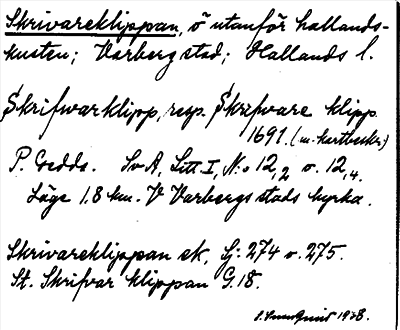 Skrivareklippan, ö utanför hallands-
kusten; Varberg stad; Hallands l.
Skrifwarklipp, resp. Skrifvare klipp
1691. (m. kartbeskr.)
P. Gedda. SvA, Litt. I, N:o 12,2 o. 12,4.
Läge 1.8 km. V Varbergs stads kyrka.
Skrivareklippan ek, Sj. 274 o. 275.
St. Skrifvar klippan G. 18.
1938